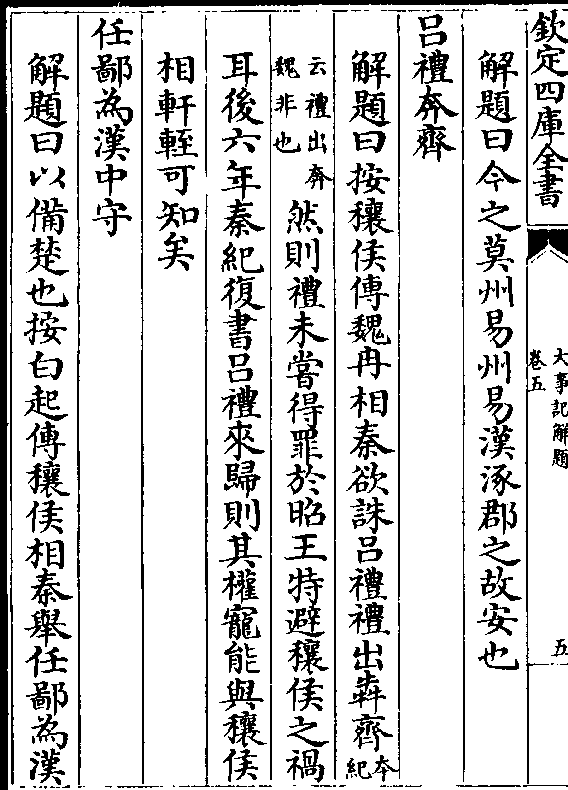 欽定四庫全書
大事記解題
卷五
五
解題曰今之莫州易州易漢涿郡之故安也
呂禮奔齊
解題曰按穰侯傳魏冉相秦欲誅呂禮禮出犇齊本紀
云禮出奔魏非也然則禮未嘗得罪於昭王特避穰侯之禍
耳後六年秦紀復書呂禮來歸則其權寵能與穰侯
相軒輊可知矣
任鄙為漢中守
解題曰以備楚也按白起傳穰侯相秦舉任鄙為漢